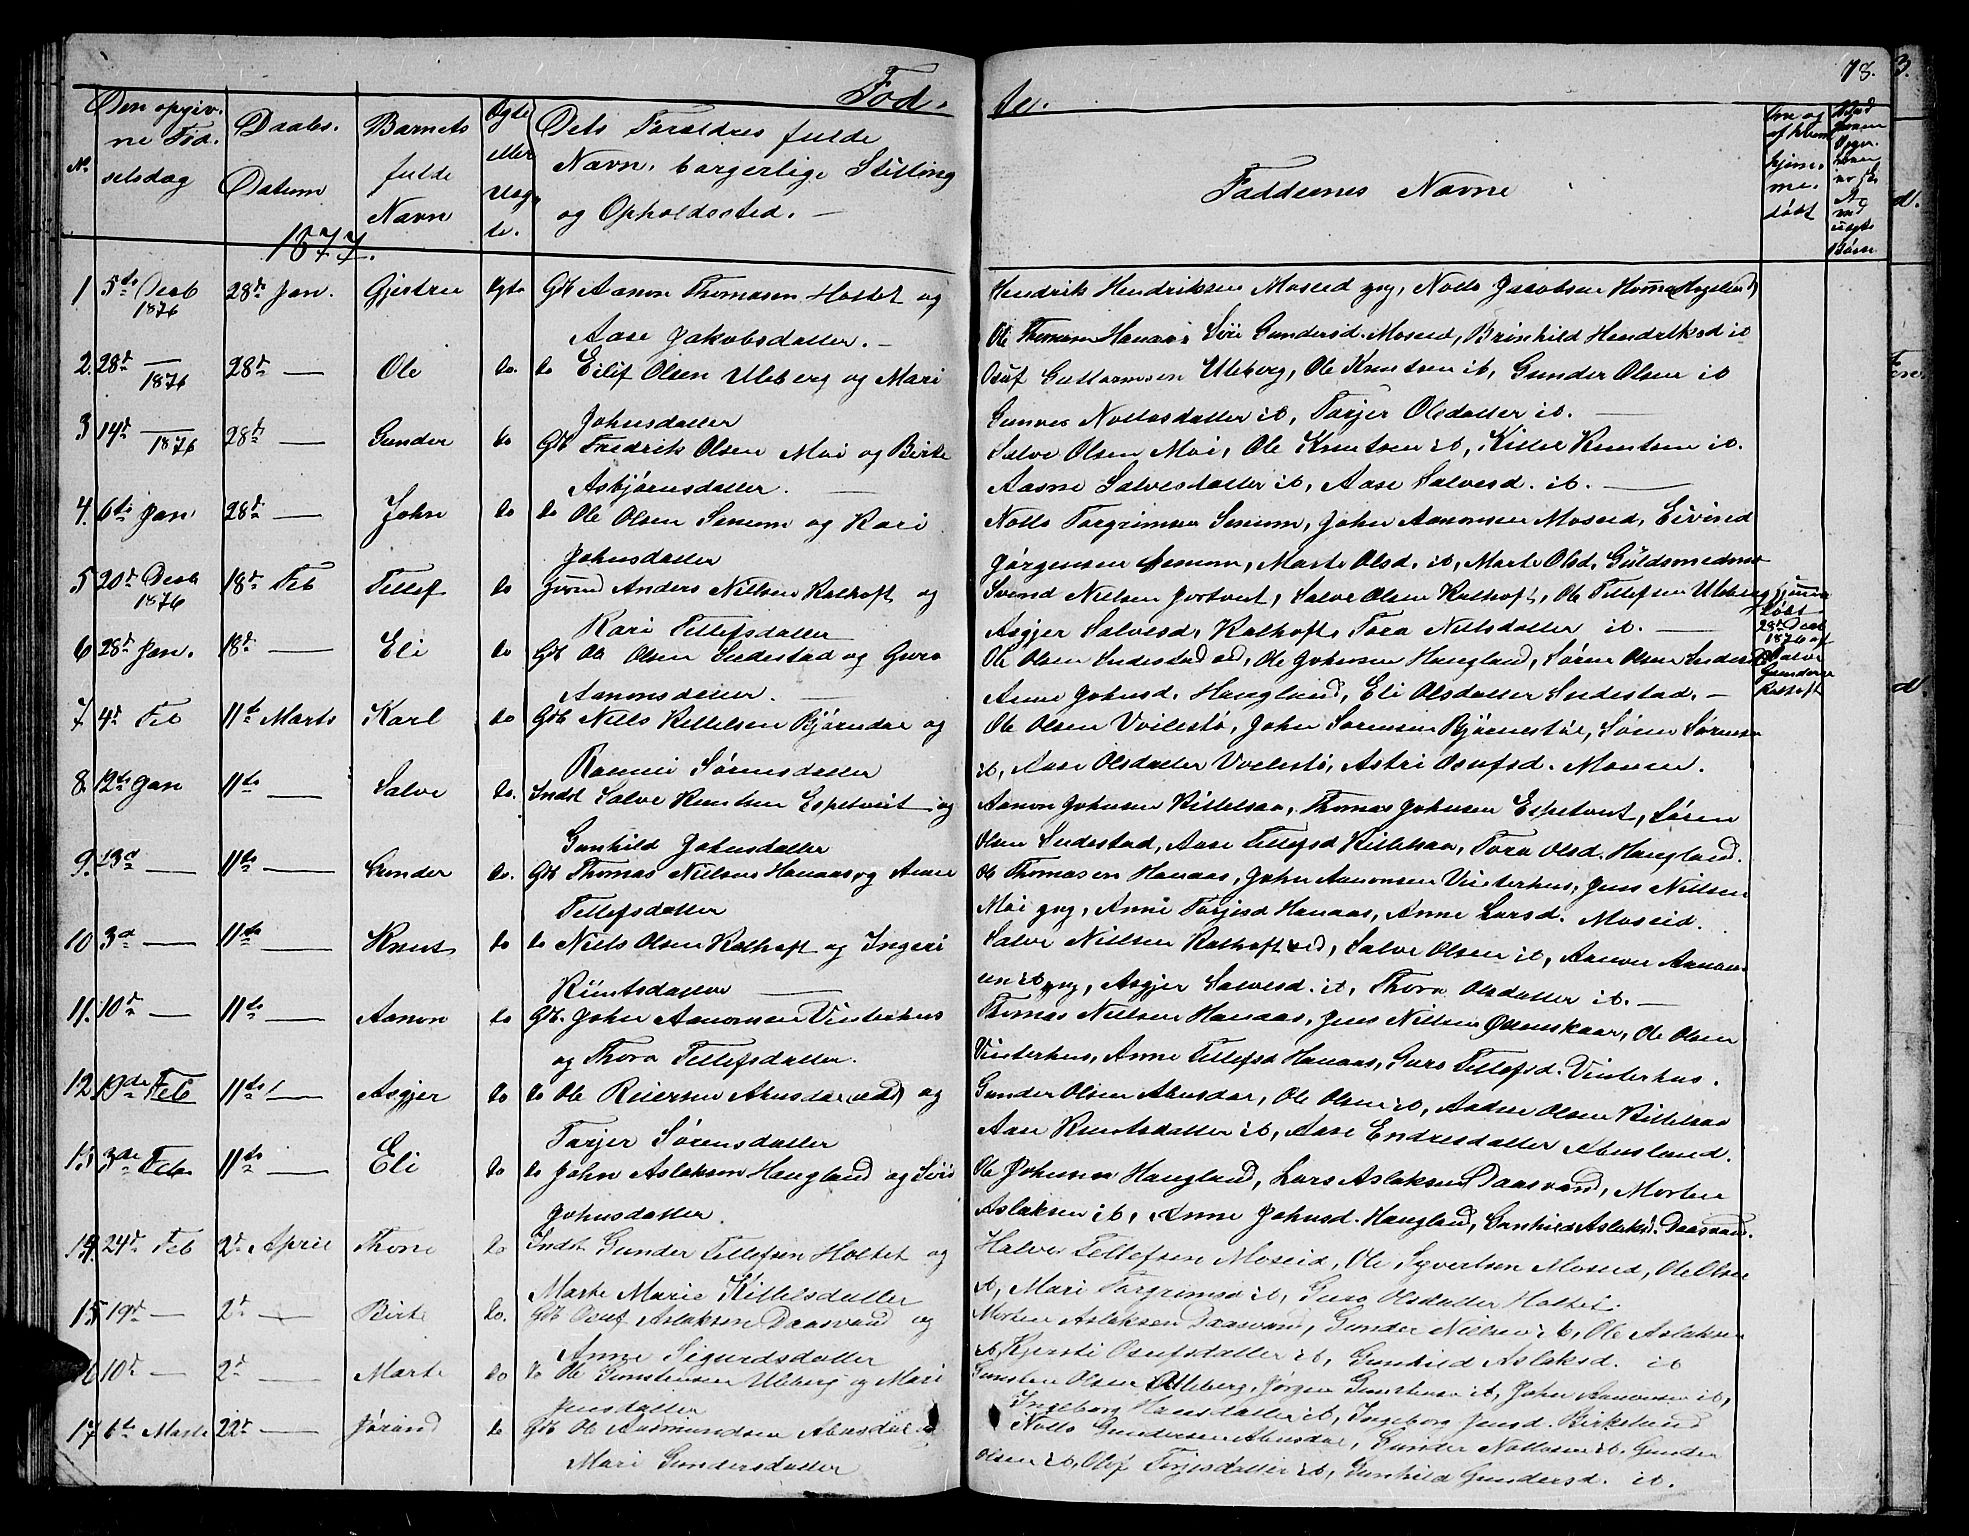 Fød.
te.
78.
Nr.
Den opgiv-
ne Fød-
selsdag
Daabs-
Datum
Barnets
fulde
Navn
Ægte
eller
Uæg-
te.
Dets Foræld­res fulde
Navn, borgerlige Stilling
og Opholdssted. —
Faddernes Navne
1877.
1 5te Decb 1876 28de Jan. Gjertru Ægte Gb Aanon Thomasen Holtet og
Aase Jakobsdatter. —
Hendrik Hendriksen Moseid gng, Nolls Jacobsen
Ole Thomasen Hanaas, Siri Gundersd. Moseid, Brinhild Hendriksd it
2. 28de — 1876 28de — Ole do. do Eilif Olsen Uleberg og Mari
Johnsdatter
Osuf Guttormsen Uleberg, Ole Knutsen it, Gunder Olsen it
Gunvor Nollesdatter it, Tarjer Olsdatter it. —
3 14de — 1876 28de — Gunder do Gb Fredrik Olsen Moi og Birte
Asbjørnsdatter. —
Salve Olsen Moi, Ole Knutsen it, Kittil Knutsen it.
Aasne Salvesdatter it, Aase Salvesd. it. —
4. 6te Jan 28de — John do do Ole Olsen Senum og Kari
Johnsdatter
Nolls Torgrimsen Senum, John Aanonsen Moseid, Eivind
Jørgensen Senum, Marte Olsd. it, Marte Olsd.
5 20de Decb 1876 18de Feb Tellef do Anders Nielsen Kalhoft og
Kari Tellefsdatter
Svend Nielsen Jortveit, Salve Olsen Kalhoft, Ole Tellefsen Uleberg
Asgjer Salvesd. Kalhoft, Tora Nilsdatter it. —
døbt
28de Decb
1876 af
Salve
Kalhoft
6 28de Jan. 18de — Eli do Gb Ole Olsen Sudestad og Guro
Aanonsdatter. —
Ole Olsen Sudestad, Ole Johnsen Haugland, Søren Olsen
Anne Johnsd. Haugland, Eli Olsdatter Sudestad. —
7. 4de Feb 11te Marts Karl do Gb Nills Kittelsen Bjørndal og
Sørensdatter
Ole Olsen Voilestø, John Sørensen Bjørnestøl, Søren Sørensen
it, Aase Olsdatter Voilestø, Astri Osufsd. Moseid.
8. 12te Jan 11te — Salve do. Indst Salve Knutsen Espetveit og
Gunhild Johnsdatter
Aanon Johnsen Kittelsaa, Thomas Johnsen Espetveit, Søren
Olsen Sudestad, Aase Tellefsd Kittelsaa, Tora Olsd. Haugland.
9. 13de — 11te — Gunder do. Gb Thomas Nielsen Hanaas og Anne
Tellefsdatter
Ole Thomasen Hanaas, John Aanonsen Vinterhus, Jens Nielsen
Moi gng, Anne Torjusd Hanaas, Anne Larsd. Moseid.
10 3de — 11te — Knut do do Niels Olsen Kalhoft og Ingeri
Knutsdatter —
Salve Nielsen Kalhoft, Salve Olsen it, Aanon Aanon-
sen it gng, Asgjer Salvesd. it, Thora Olsdatter it. —
11. 10de — 11te — Aanon do Gb. John Aanonsen Vinterhus
og Thora Tellefsdatter.
Thomas Nielsen Hanaas, Jens Nielsen Ødenskaar, Ole Olsen
Vinterhus, Anne Tellefsd Hanaas, Guro Tellefsd. Vinterhus.
12 19de Feb 11te — Asgjer do do Ole Reiersen Abusdal og
Tarjer Sørensdatter
Gunder Olsen Abusdal, Ole Olsen it, Olsen Kittelsaa
Aase Knutsdatter it, Aase Endresdatter Abusland.
13 3de Feb 11te — Eli do do John Aslaksen Haugland og Siri
Johnsdatter
Ole Johnsen Haugland, Lars Aslaksen Daasvand, Morten
Aslaksen it, Anne Johnsd. Haugland, Gunhild Aslaksd. Daasvand.
14. 24de Feb 2de April Thone do Indst. Gunder Tellefsen Holtet og
Marte Marie Kittelsdatter
Halvor Tellefsen Moseid, Ole Syvertsen Moseid, Ole Olsen
it, Mari Torgrimsd it, Guro Olsdatter Holtet.
15 19de — 2de — Birte do. Gb Osuf Aslaksen Daasvand og
Anne Sigurdsdatter
Morten Aslaksen Daasvand, Gunder Nielsen it, Ole Aslaksen
it, Kjersti Osufsdatter it, Gunhild Aslaksd. it
16 10de — 2de — Marte do do Ole Gunstensen Uleberg og Mari
Jensdatter
Gunsten Olsen Uleberg, Jørgen Gunstensen it, John Aanonsen it,
Ingeborg Hansdatter it, Ingeborg Jensd. Birkeland
17 6te Marts 22de — Jørand do Gb Ole Aasmundsen Abusdal og
Mari Gundersdatter
Nolls Gundersen Abusdal, Gunder Nollesen it, Gunder
Olsen it, Oløf Torjusdatter it, Gunhild Gundersd. it.